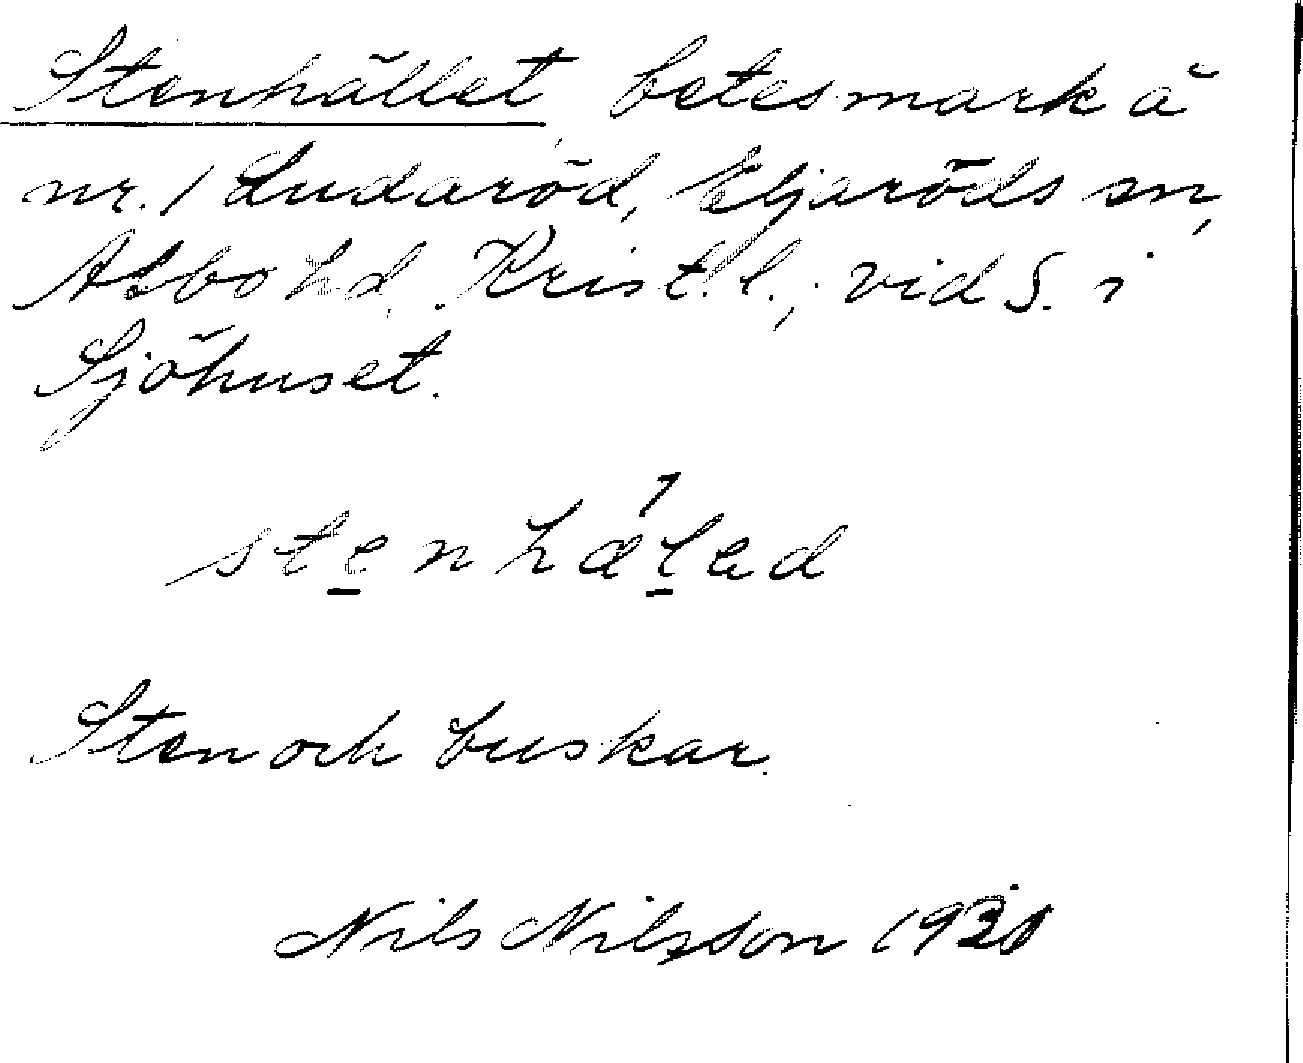 Stenhället, betesmark å
nr. 1 Ludaröd, Eljaröds sn,
Albo hd, Krist. l.; vid S. i
Sjöhuset.
stenhæ´ləd
Sten och buskar.
Nils Nilsson 1930